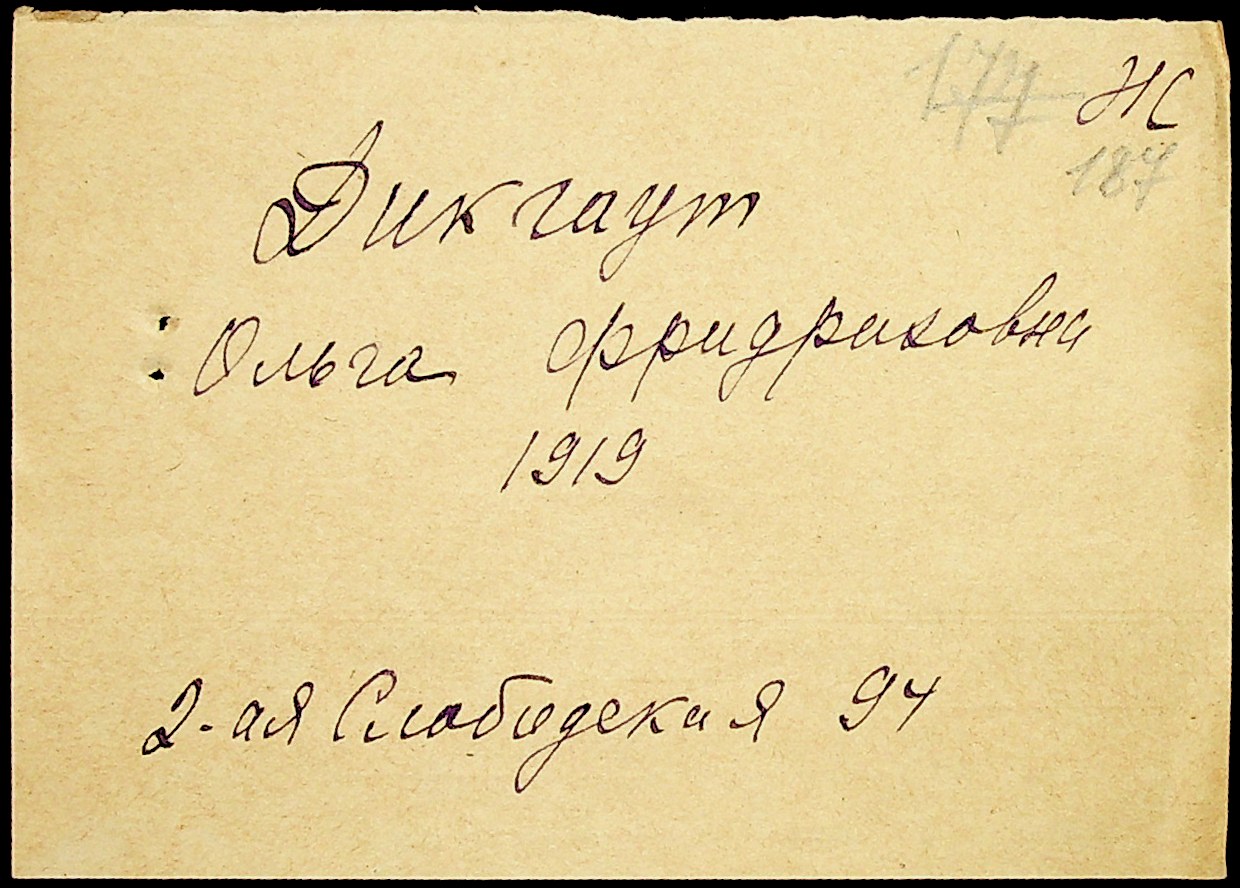 177 Ж
187
Дикгаут
Ольга Фридриховна
1919
2-ая Слободская 94